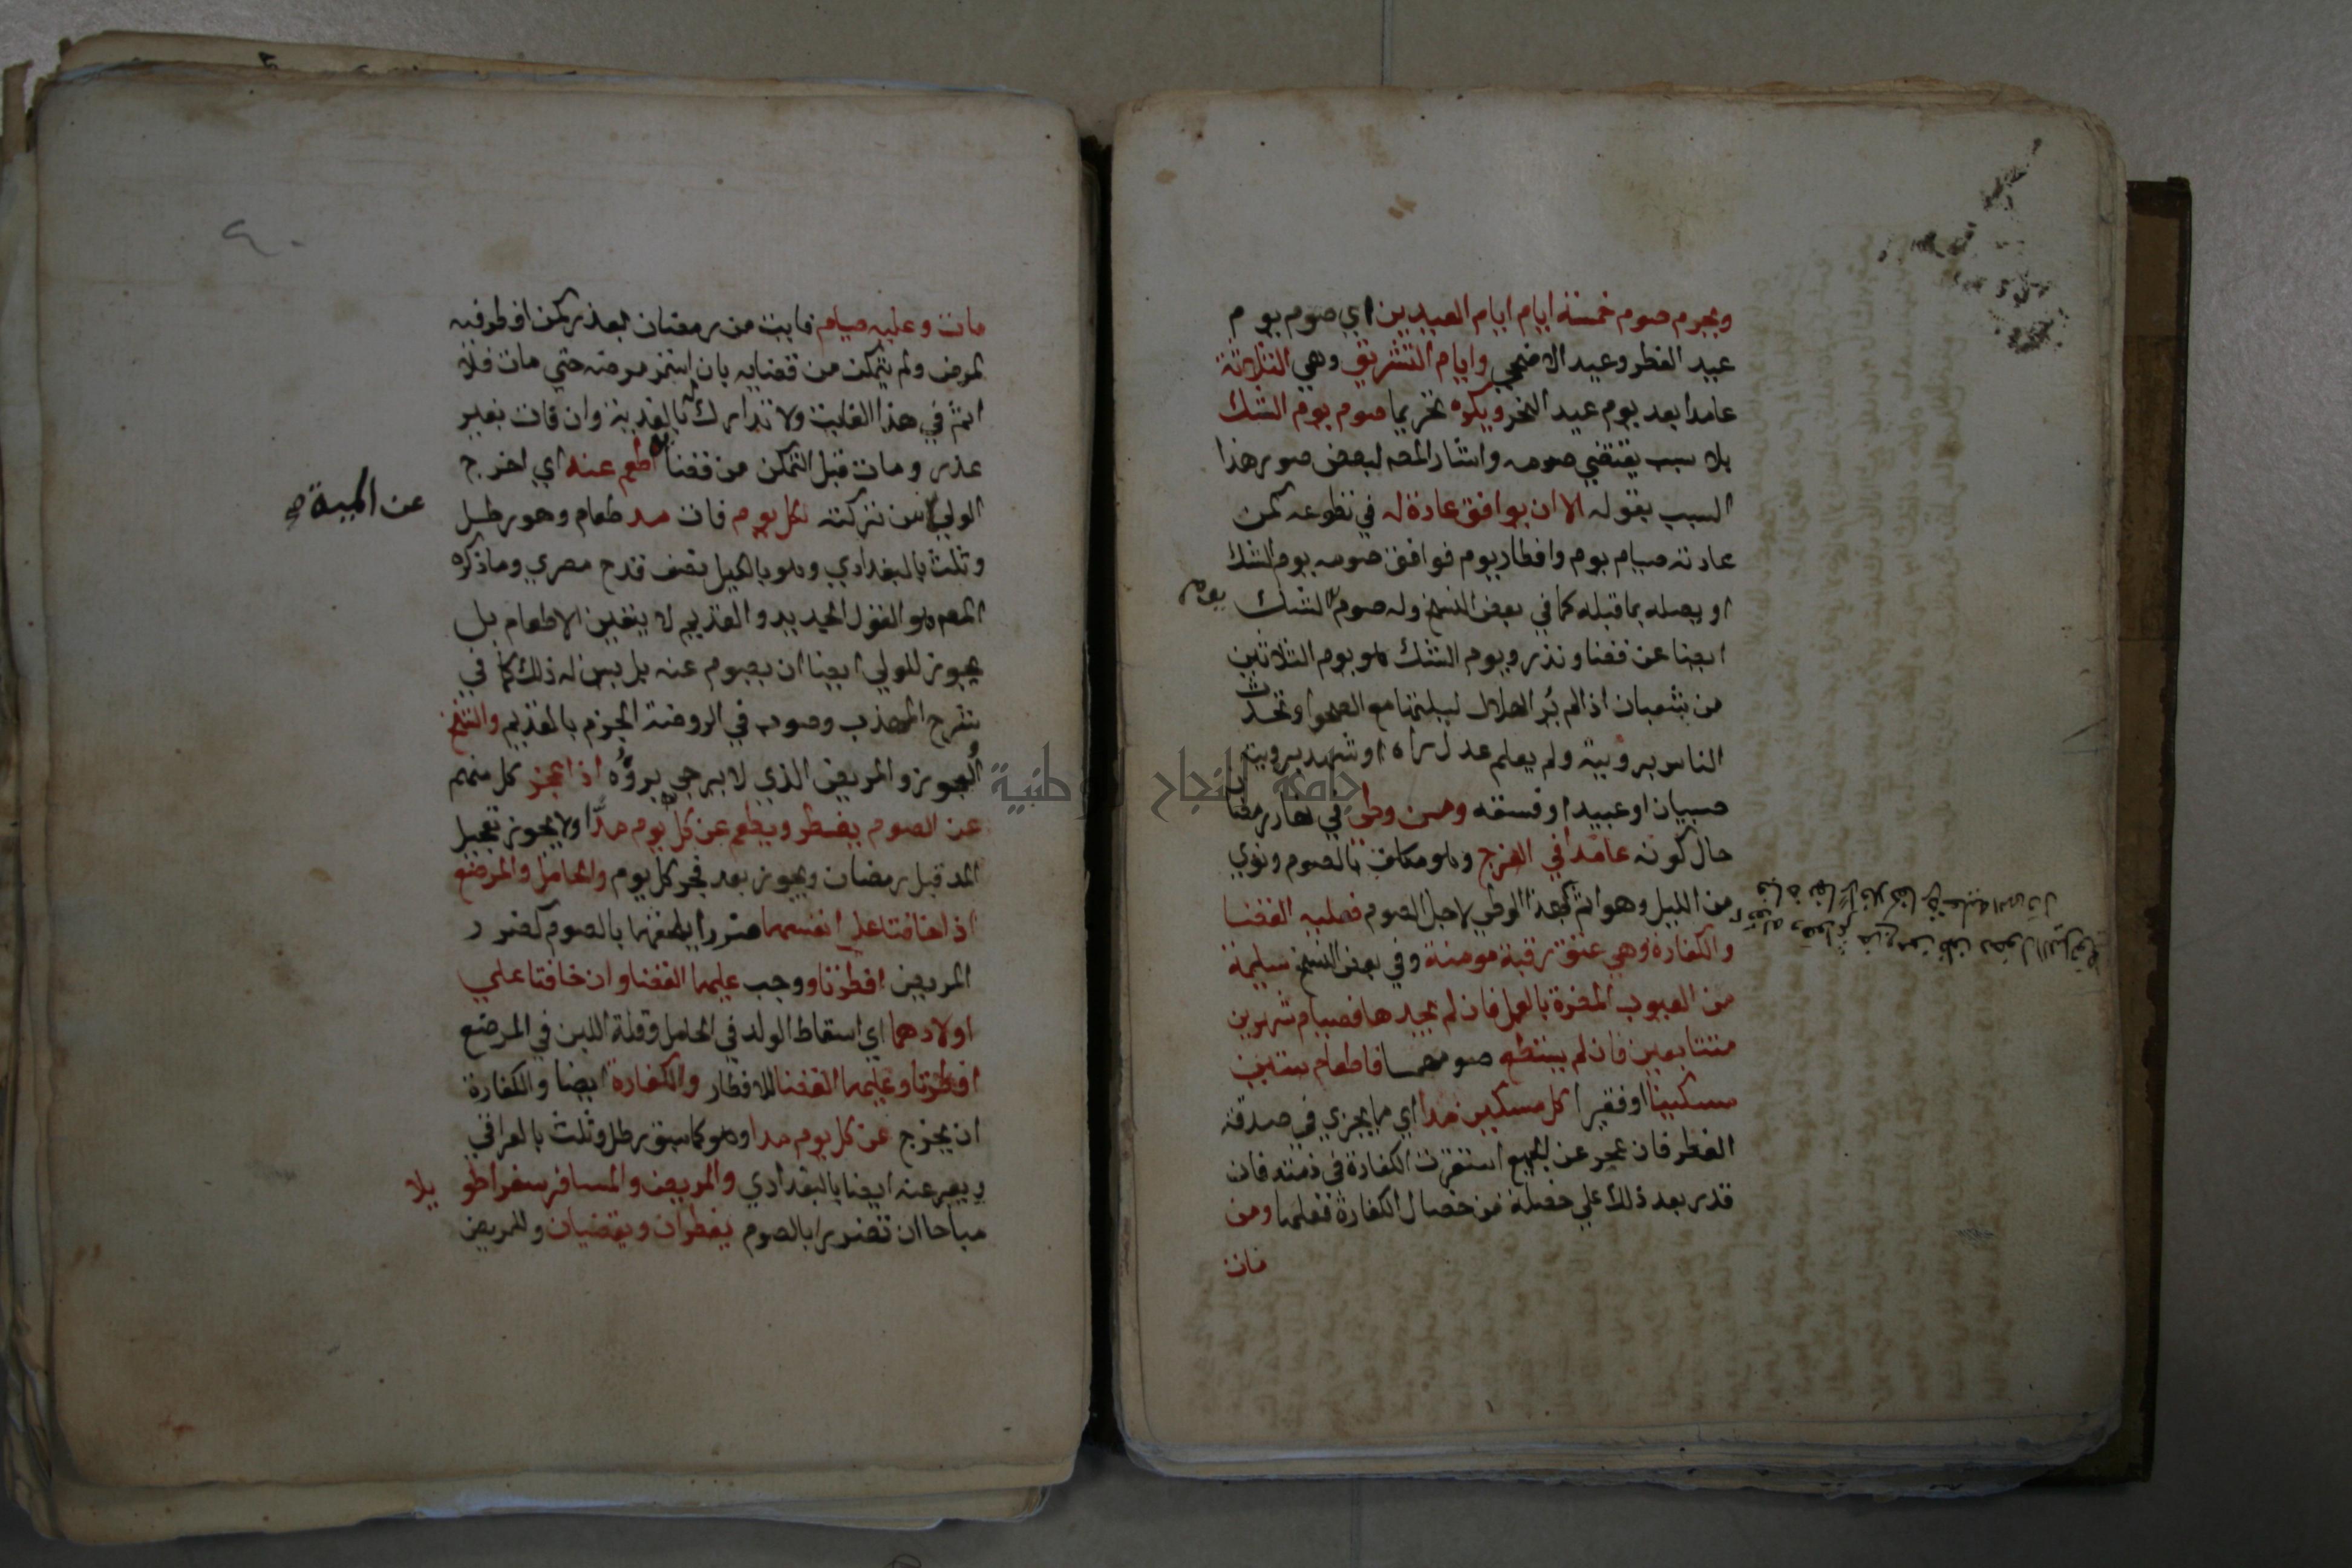 ويحرم صوم خمسة ايام ايام العيدين اي صوم يوم
عيد الفطر وعيد الاضحي وايام التشريق وهي الثلاثة
عامدا بعد يوم عيد النحر ويكره تحريما صوم يوم الشك
بلا سبب يقتضي صومه واشار المصـ لبعض صور هذا
السبب بقوله الا ان يوافق عادة له في تطوعه كمن
عادته صيام يوم وافطار يوم فوافق صومه يوم الشك
او يصله بما قبله كما في بعض النسخ وله صوم الشك
يوم
ايضا عن قضا ونذر ويوم الشك هو يوم الثلاثين
من شعبان اذا لم ير الهلال ليلتها مع الصحو او تحدث
الناس برويته ولم يعلم عدل راه او شهد برويته
صبيان او عبيد او فسقه ومن وطي في نهار رمضان
حال كونه عامدا في الفرج وهو مكلف بالصوم ونوي
من الليل وهو اثم بهذا الوطي لاجل الصوم فعليه القضا
والكفارة وهي عتق رقبة مومنة وفي بعض النسخ سليمة
من العيوب المضرة بالعمل فان لم يجدها فصيام شهرين
متتابعين فان لم يستطع صومهما فاطعام ستين
مسكينا او فقيرا كل مسكين مدا اي مما يجزي في صدقة
الفطر فان عجز عن الجميع استقرت الكفارة في ذمته فان
قدر بعد ذلك علي خصلة من خصال الكفارة فعلها ومن
مات
مات وعليه صيام فايت من رمضان بعذر كمن افطر فيه
لمرض ولم يتمكن من قضايه بان استمر مرضه حتي مات فلا
اثم في هذا الفايت ولا تدارك له بالفدية وان فات بغير
عذر ومات قبل التمكن من قضايه اطعم عنه اي اخرج
الولي من تركته لكل يوم فات مد طعام وهو رطل
عن الميت صح
وثلث بالبغدادي وهو بالكيل نصف قدح مصري وما ذكره
المصـ هو القول الجديد والقديم لا يتعين الاطعام بل
يجوز للولي ايضا ان يصوم عنه بل يسن له ذلك كما في
شرح المهذب وصوب في الروضة الجزم بالقديم والشيخ
العجوز والمريض الذي لا يرجي بروه اذا عجز كل منهم
عن الصوم يفطر ويطعم عن كل يوم مدا ولا يجوز تعجيل
المد قبل رمضان ويجوز بعد فجر كل يوم والحامل والمرضع
اذا خافتا علي انفسهما ضررا يلحقهما بالصوم كضرر
المريض افطرتا ووجب عليهما القضا وان خافتا علي
اولادهما اي اسقاط الولد في الحامل وقلة اللبن في المرضع
افطرتا وعليهما القضا للافطار والكفارة ايضا والكفارة
ان يخرج عن كل يوم مدا وهو كما سبق رطل وثلث بالعراقي
ويعبر عنه ايضا بالبغدادي والمريض والمسافر سفرا طويلا
مباحا ان تضررا بالصوم يفطران ويقضيان وللمريض
جامعة النجاح الوطنية